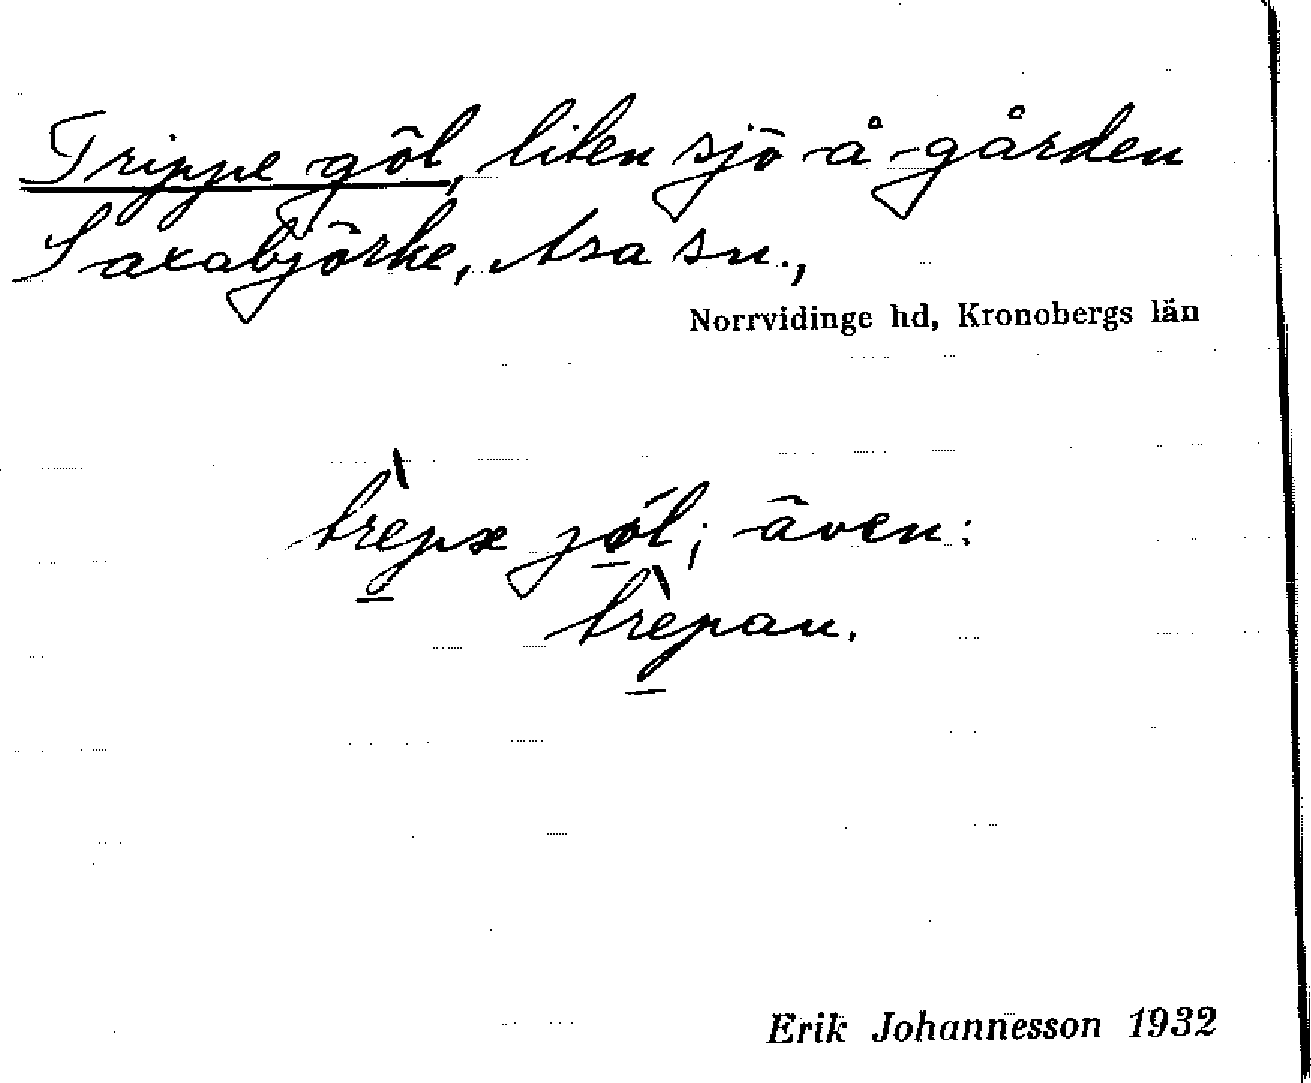 Trippe göl, liten sjö å gården
Saxabjörke, Asa sn.,
Norrvidinge hd, Kronobergs län
trèpæ jøl; även:
trèpan.
Erik Johannesson 1932